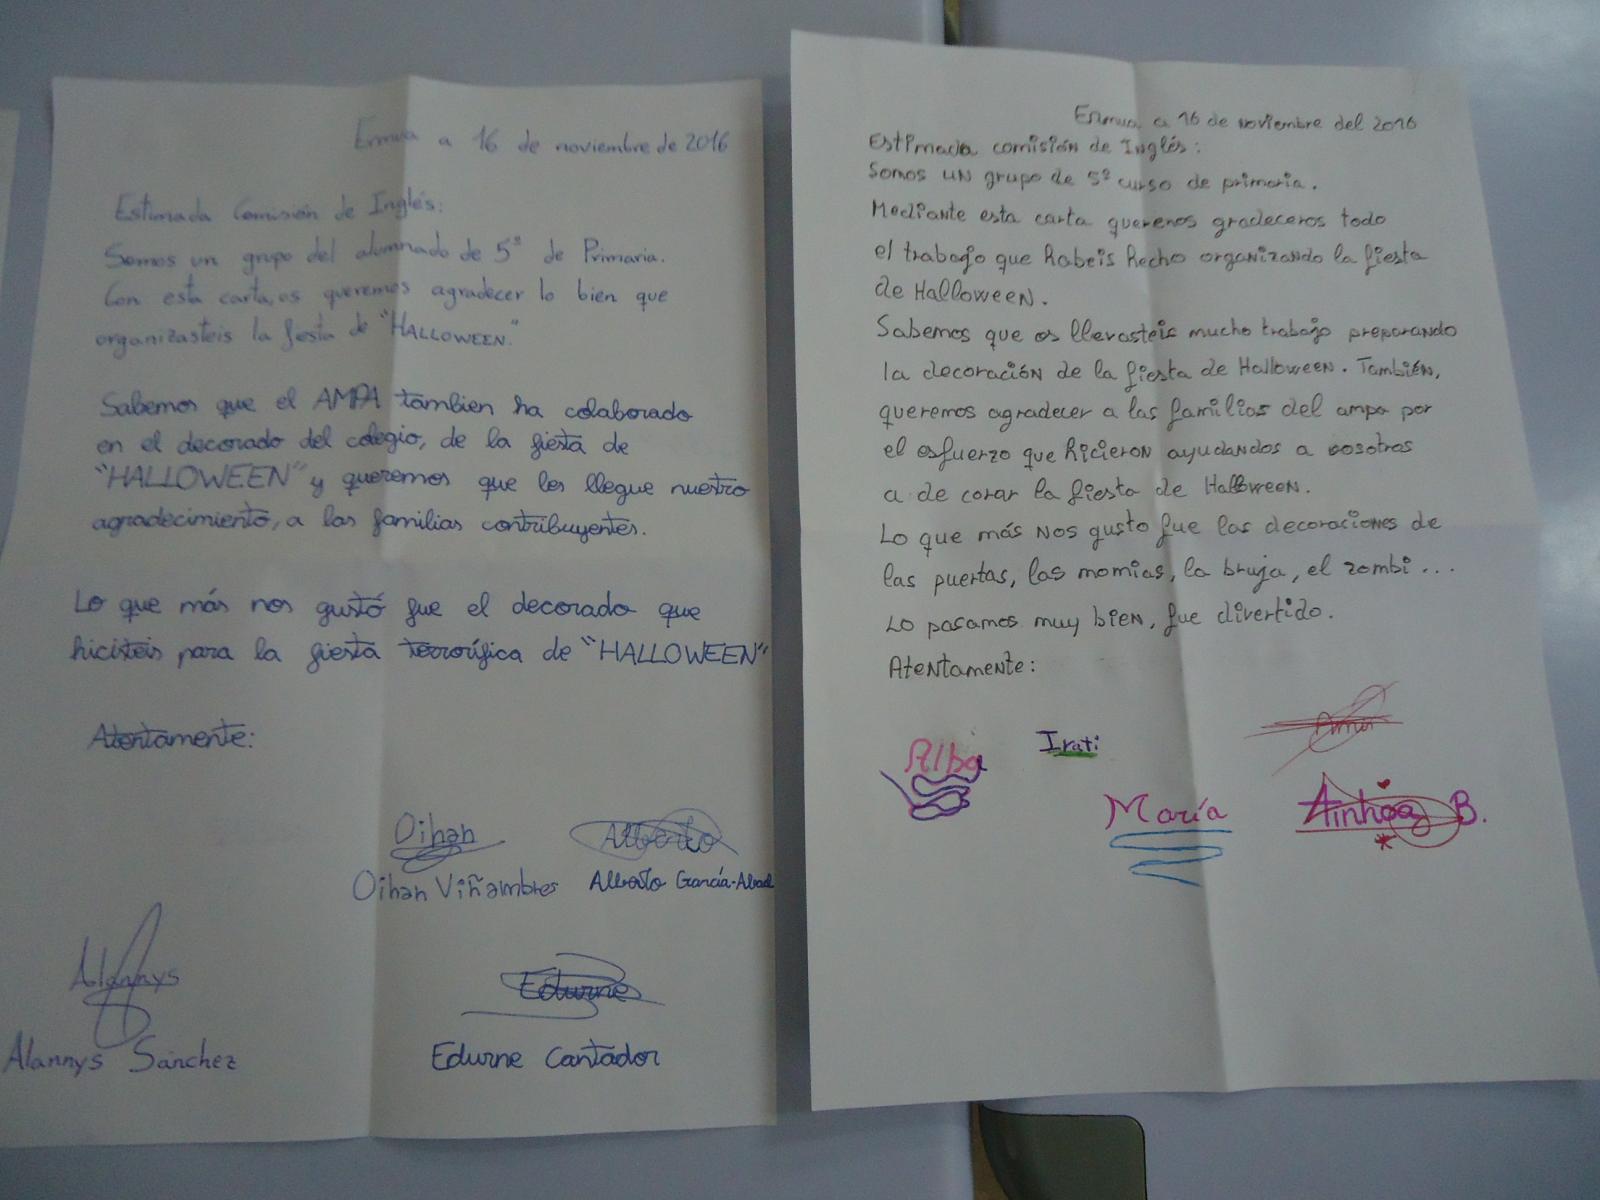 Ermua a 16 de noviembre de 2016
Estimada Comisión de Inglés:
Somos un grupo del alumnado de 5º de Primaria.
Con esta carta, os queremos agradecer lo bien que
organizasteis la fiesta de "HALLOWEEN."
Sabemos que el AMPA tambien ha colaborado
en el decorado del colegio, de la fiesta de
"HALLOWEEN" y queremos que les llegue nuestro
agradecimiento, a las familias contribuyentes.
Lo que más nos gustó fue el decorado que
hicisteis para la fiesta terrorífica de "HALLOWEEN"
Atentamente:
Oihan
Alberto
Oihan Viñambres
Alberto García-Abad
Alannys
Edurne
Alannys Sánchez
Edurne Cantador
Ermua a 16 de noviembre del 2016
Estimada comisión de Inglés:
Somos un grupo de 5º curso de primaria.
Mediante esta carta queremos gradeceros todo
el trabajo que habeis hecho organizando la fiesta
de Halloween.
Sabemos que os llevasteis mucho trabajo preparando
la decoración de la fiesta de Halloween. También,
queremos agradecer a las familias del ampa por
el esfuerzo que hicieron ayudandos a vosotros
a de corar la fiesta de Halloween.
Lo que más nos gusto fue las decoraciones de
las puertas, las momias, la bruja, el zombi...
Lo pasamos muy bien, fue divertido.
Atentamente:
Alba
Irati
María
Ainhoa B.